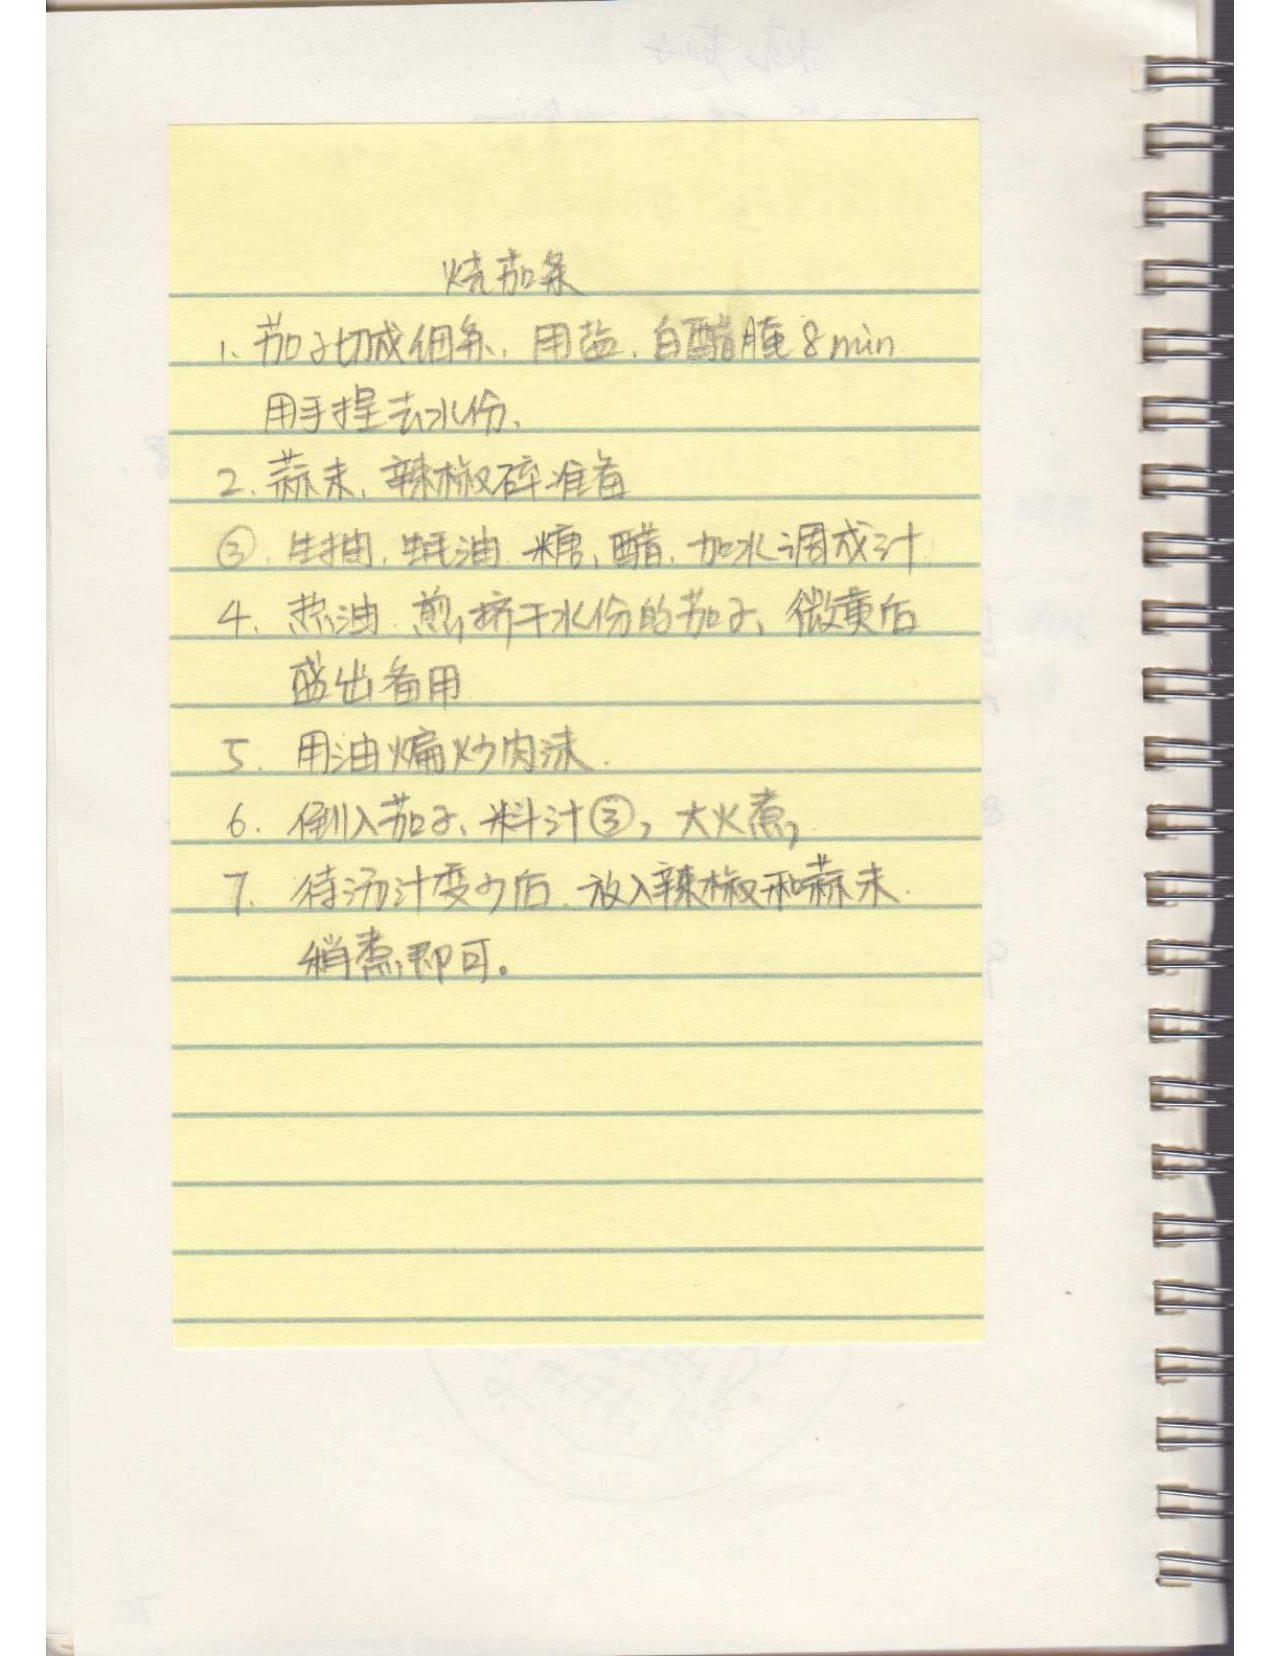 烧茄条
1、茄子切成细条，用盐，白醋腌8min
用手捏去水份、
2、蒜末，辣椒碎准备
③、生抽，蚝油、糖、醋，加水调成汁
4、热油、煎挤干水份的茄子、微黄后
盛出备用
5、用油煸炒肉沫．
6．倒入茄子、料汁③，大火煮，
7、待汤汁变少后、放入辣椒和蒜末．
稍煮即可。